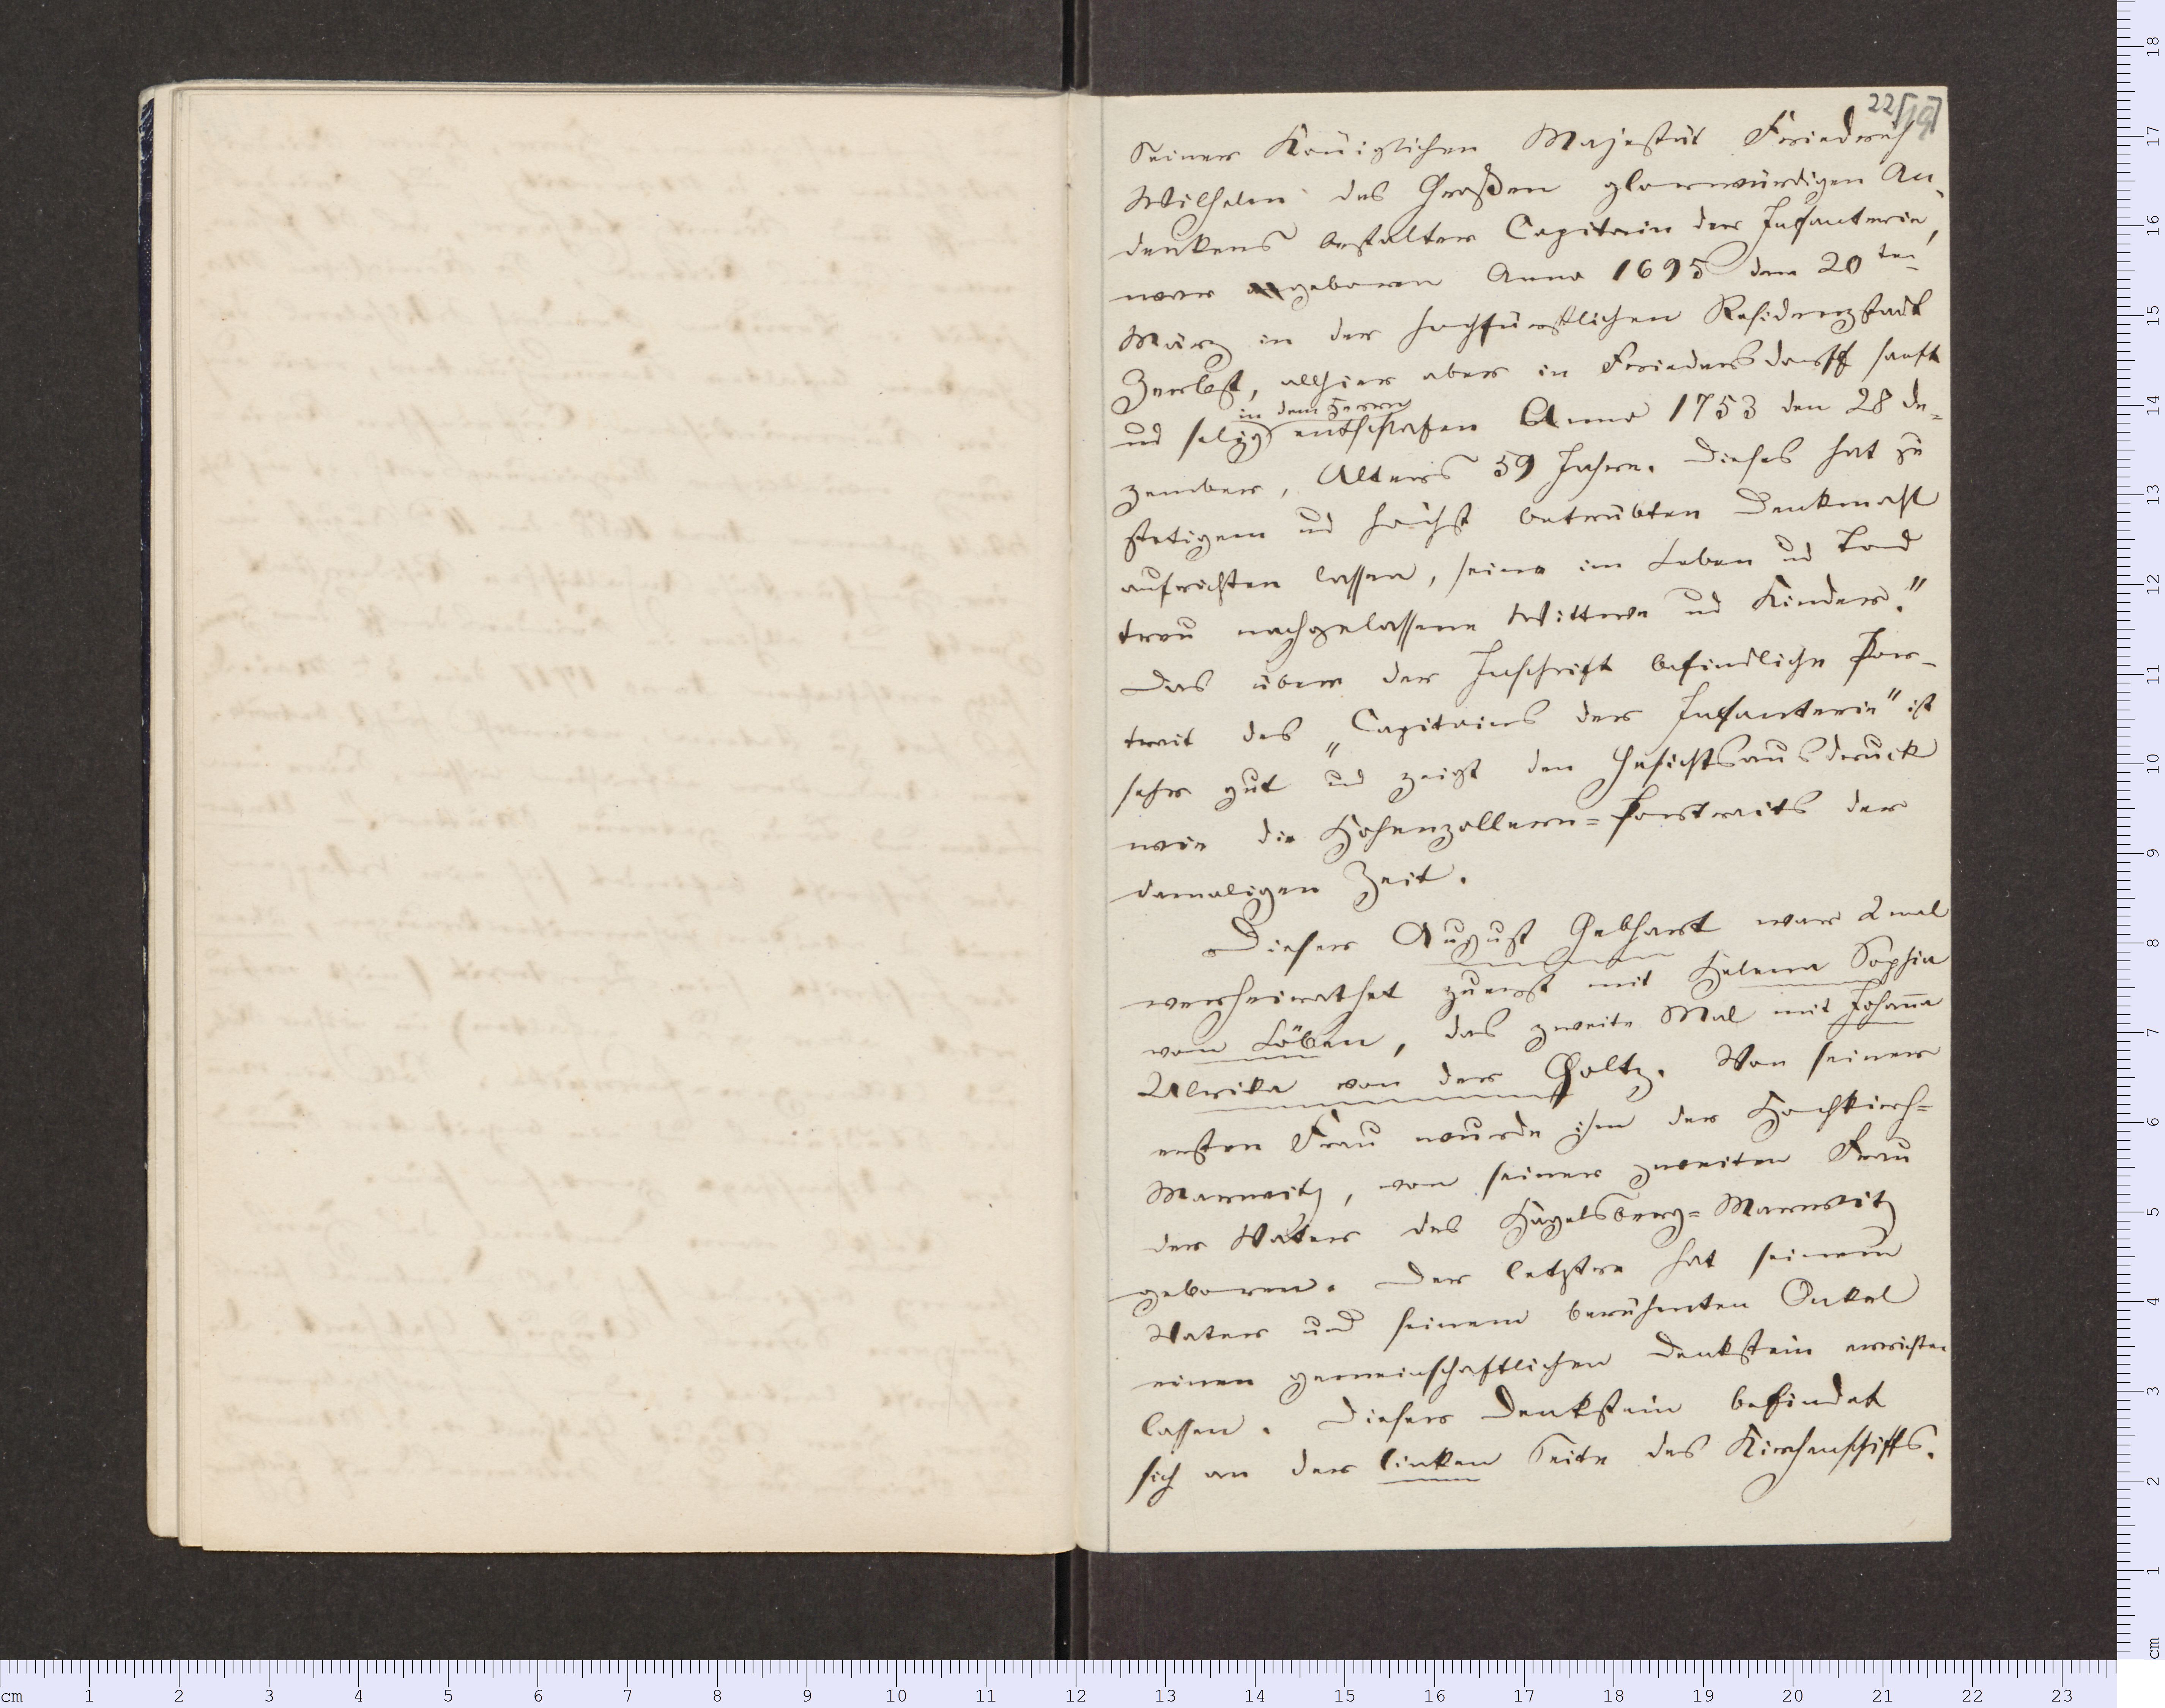 22[19]
Seiner Königlichen Majestät Friedrich
Wilhelm des Großen glorwürdigen An-
denkens bestalter Capitain der Infanterie,
war geboren Anno 1695 den 20ten
März in der hochfürstlichen Residenzstadt
Zerbst, allhier aber in Friedersdorff sanft
in dem Herrn
und selig entschlafen Anno 1753 den 28 De-
zember, Alters 59 Jahre. Dieses hat zu
stetigem und höchst betrübten Denkmahl
aufrichten lassen, seine im Leben und Tod
treu nachgelassene Wittwe und Kinder."
Das über der Inschrift befindliche Por-
trait des „Capitains der Infanterie" ist
sehr gut und zeigt den Gesichtsausdruck
wie die Hohenzollern-Portraits der
damaligen Zeit.
Dieser August Gebhart war 2 mal
verheirathet zuerst mit Helena Sophia
von Löben, das zweite Mal mit Johanna
Ulrika von der Goltz. Von seiner
ersten Frau wurde ihm der Hochkirch-
Marwitz, von seiner zweiten Frau
der Vater des Hagelsberg-Marwitz
geboren. Der letztre hat seinem
Vater und seinem berühmten Onkel
einen gemeinschaftlichen Denkstein errichten
lassen. Dieser Denkstein befindet
sich an der linken Seite des Kirchenschiffs.
cm 1 2 3 4 5 6 7 8 9 10 11 12 13 14 15 16 17 18 19 20 21 22 23
cm 1 2 3 4 5 6 7 8 9 10 11 12 13 14 15 16 17 18